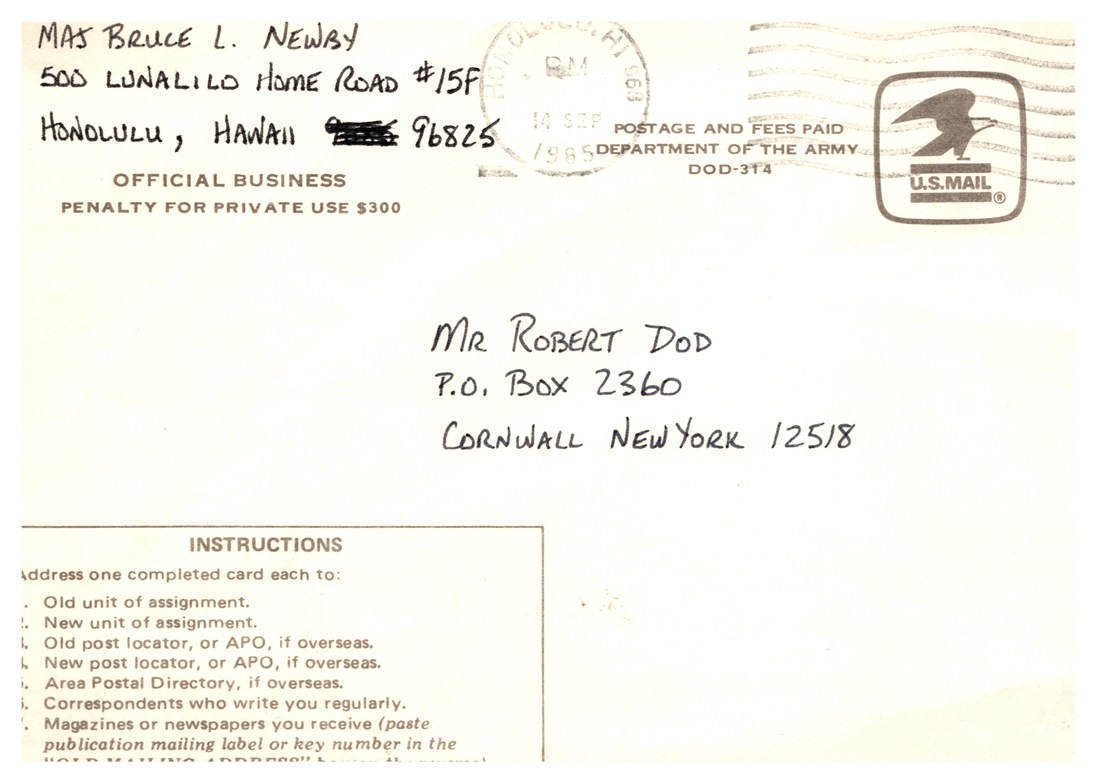 MAJ BRUCE L. NEWBY
500 LUNALILO HOME ROAD #15F
HONOLULU, HAWAII 96825
OFFICIAL BUSINESS
PENALTY FOR PRIVATE USE $300
HONOLULU, HI 968
PM
14 SEP
1985
POSTAGE AND FEES PAID
DEPARTMENT OF THE ARMY
DOD-314
U.S.MAIL ®
MR ROBERT DOD
P.O. BOX 2360
CORNWALL NEW YORK 12518
INSTRUCTIONS
Address one completed card each to:
1. Old unit of assignment.
2. New unit of assignment.
3. Old post locator, or APO, if overseas.
4. New post locator, or APO, if overseas.
5. Area Postal Directory, if overseas.
6. Correspondents who write you regularly.
7. Magazines or newspapers you receive (paste
publication mailing label or key number in the
"OLD MAILING ADDRESS"